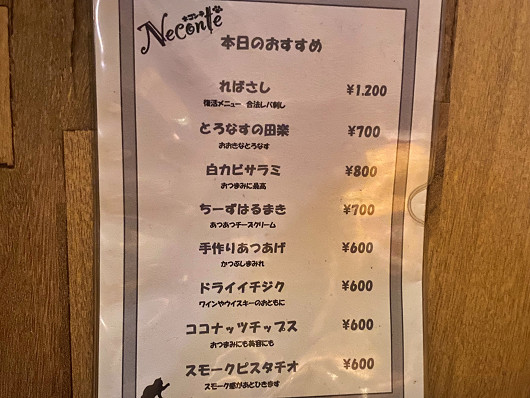 ネコンテ
Neconte
本日のおすすめ
ればさし ¥1.200
復活メニュー 合法レバ刺し
とろなすの田楽 ¥700
おおきなとろなす
白カビサラミ ¥800
おつまみに最高
ちーずはるまき ¥700
あつあつチーズクリーム
手作りあつあげ ¥600
かつぶしまみれ
ドライイチジク ¥600
ワインやウイスキーのおともに
ココナッツチップス ¥600
おつまみにも美容にも
スモークピスタチオ ¥600
スモーク感があとひきます